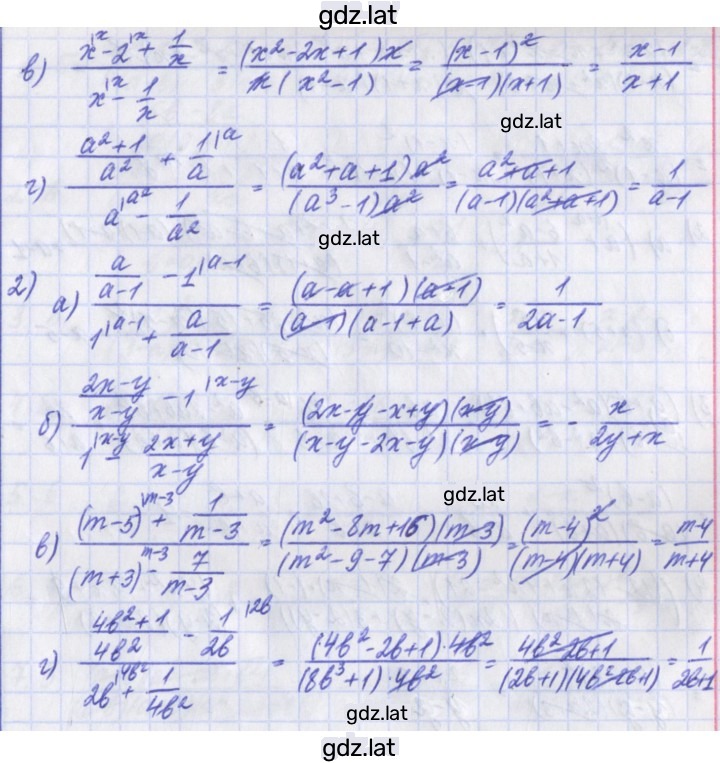 gdz.lat
в) (x^{|x} - 2^{|x} + 1/x)/(x^{|x} - 1/x) = ((x² - 2x + 1)x)/(x(x² - 1)) = (x - 1)²/((x-1)(x+1)) = (x - 1)/(x + 1)
gdz.lat
г) ((a² + 1)/a² + 1/a^{|a})/(a^{|a²} - 1/a²) = ((a² + a + 1)a²)/((a³ - 1)a²) = (a² + a + 1)/((a-1)(a² + a + 1)) = 1/(a - 1)
gdz.lat
2) а) (a/(a-1) - 1^{|a-1})/(1^{|a-1} + a/(a-1)) = ((a - a + 1)(a-1))/((a-1)(a - 1 + a)) = 1/(2a - 1)
б) ((2x-y)/(x-y) - 1^{|x-y})/(1^{|x-y} - (2x+y)/(x-y)) = ((2x - y - x + y)(x-y))/((x - y - 2x - y)(x-y)) = - x/(2y + x)
gdz.lat
в) ((m-5)^{|m-3} + 1/(m-3))/((m+3)^{m-3} - 7/(m-3)) = ((m² - 8m + 16)(m-3))/((m² - 9 - 7)(m-3)) = (m-4)²/((m-4)(m+4)) = (m-4)/(m+4)
г) ((4b² + 1)/4b² - 1/2b^{|2b})/(2b^{|4b²} + 1/4b²) = ((4b² - 2b + 1)·4b²)/((8b³ + 1)·4b²) = (4b² - 2b + 1)/((2b+1)(4b² - 2b + 1)) = 1/(2b+1)
gdz.lat
gdz.lat